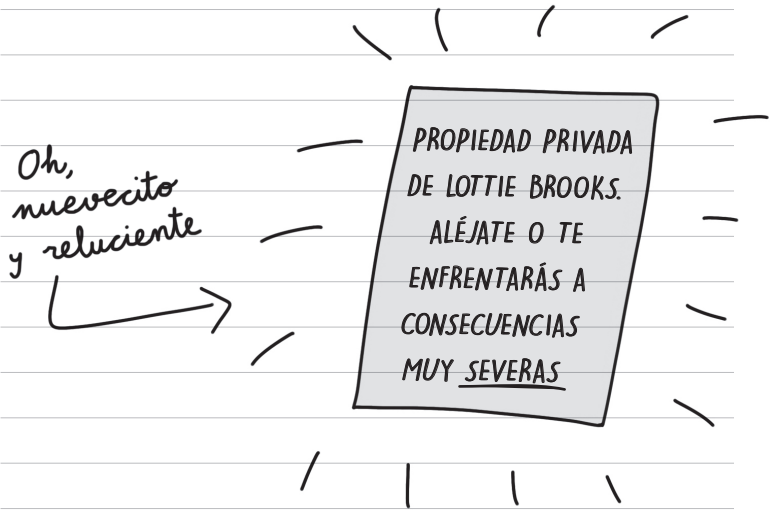 Oh,
nuevecito
y reluciente
PROPIEDAD PRIVADA
DE LOTTIE BROOKS.
ALÉJATE O TE
ENFRENTARÁS A
CONSECUENCIAS
MUY SEVERAS